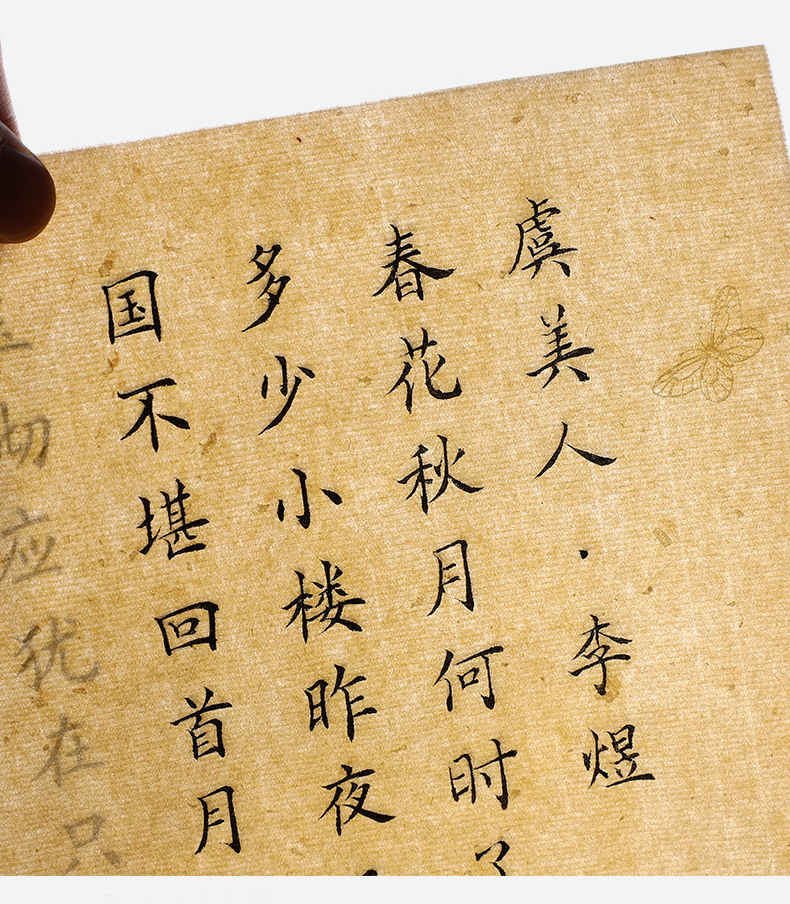 虞美人·李煜
春花秋月何时了
多少小楼昨夜
国不堪回首月
砌应犹在只